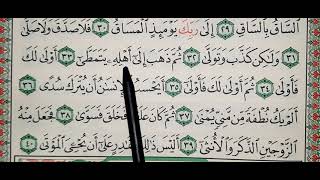 ٱلسَّاقُ بِٱلسَّاقِ ٢٩ إِلَىٰ رَبِّكَ يَوْمَئِذٍ ٱلْمَسَاقُ ٣٠ فَلَا صَدَّقَ وَلَا صَلَّىٰ
٣١ وَلَٰكِن كَذَّبَ وَتَوَلَّىٰ ٣٢ ثُمَّ ذَهَبَ إِلَىٰٓ أَهْلِهِۦ يَتَمَطَّىٰٓ ٣٣ أَوْلَىٰ لَكَ
فَأَوْلَىٰ ٣٤ ثُمَّ أَوْلَىٰ لَكَ فَأَوْلَىٰٓ ٣٥ أَيَحْسَبُ ٱلْإِنسَٰنُ أَن يُتْرَكَ سُدًى ٣٦
أَلَمْ يَكُ نُطْفَةً مِّن مَّنِىٍّ يُمْنَىٰ ٣٧ ثُمَّ كَانَ عَلَقَةً فَخَلَقَ فَسَوَّىٰ ٣٨ فَجَعَلَ مِنْهُ
ٱلزَّوْجَيْنِ ٱلذَّكَرَ وَٱلْأُنثَىٰٓ ٣٩ أَلَيْسَ ذَٰلِكَ بِقَٰدِرٍ عَلَىٰٓ أَن يُحْـِۧىَ ٱلْمَوْتَىٰ ٤٠